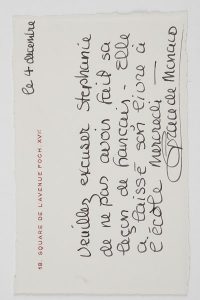 18. SQUARE DE L'AVENUE FOCH. XVIE
le 4 décembre
Veuillez excuser Stephanie
de ne pas avoir fait sa
leçon de français - Elle
a laissé son livre à
l'école mercredi -
Grace de Monaco